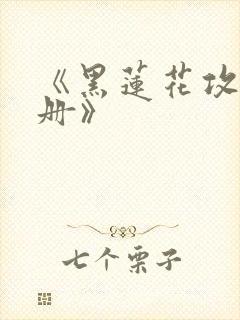 《黑蓮花攻
册》
七个栗子